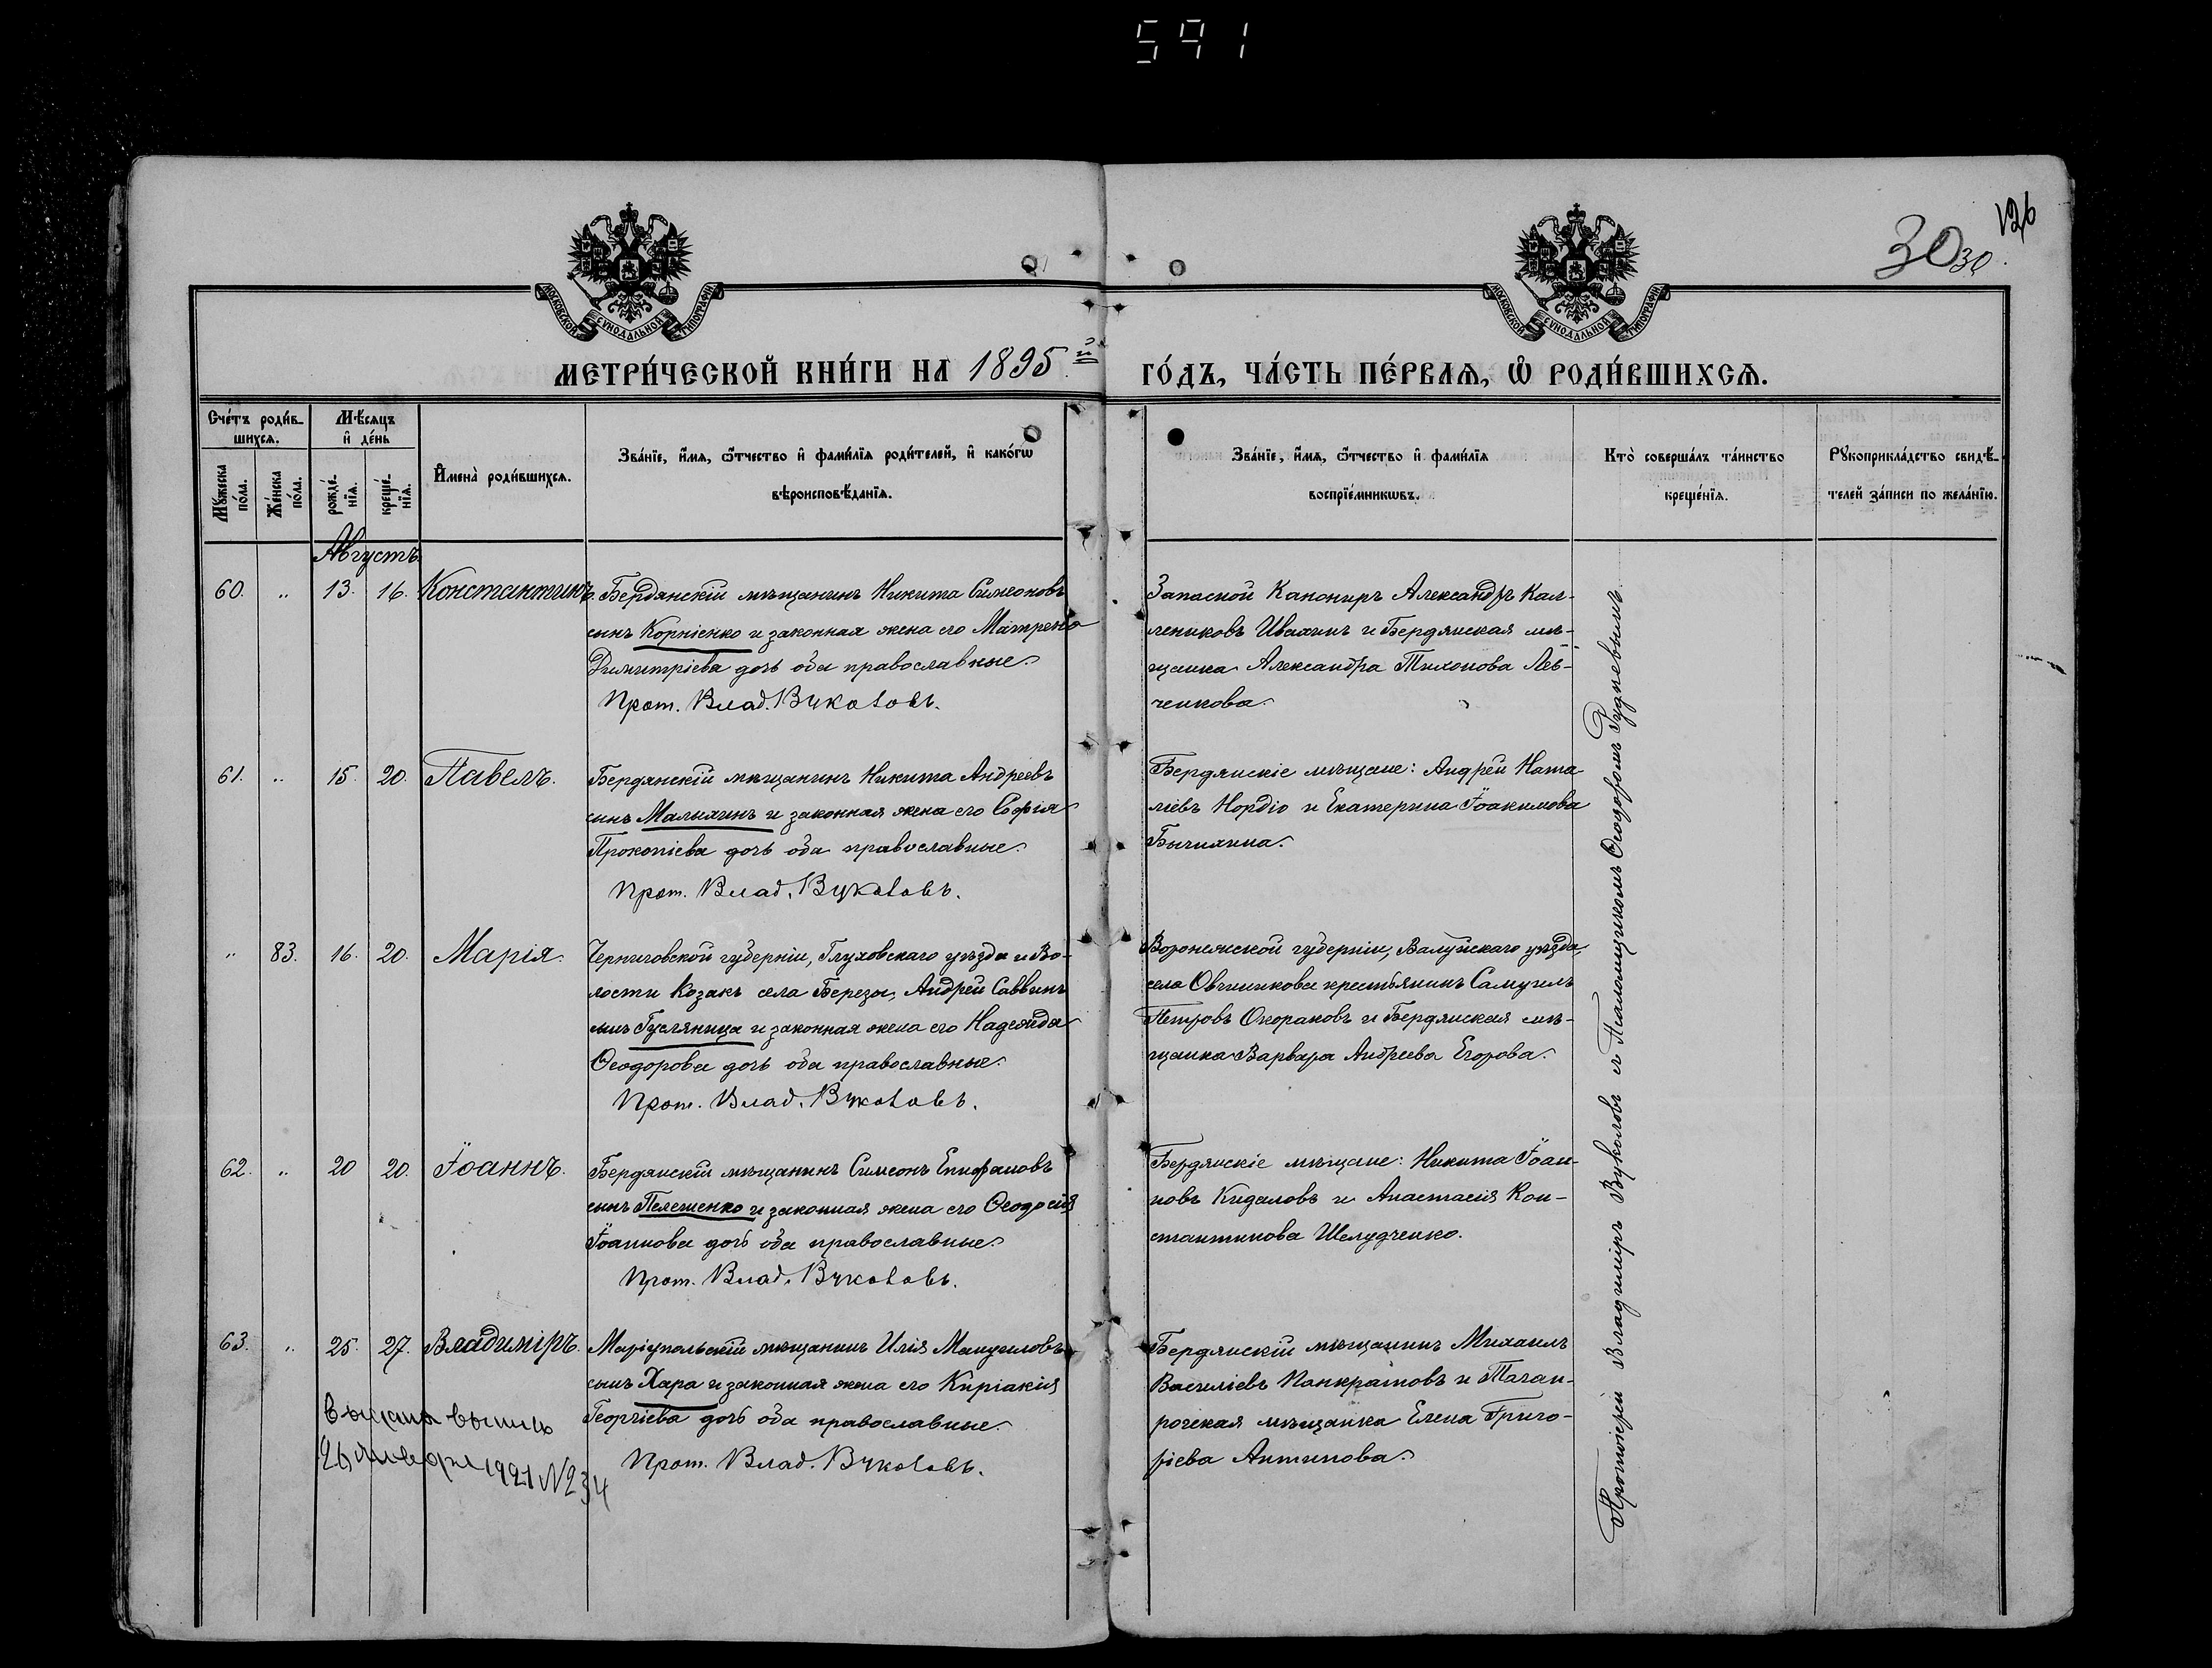 591
126
30 30.
МОСКОВСКОЙ СУНОДАЛЬНОЙ ТИПОГРАФIИ
МОСКОВСКОЙ СУНОДАЛЬНОЙ ТИПОГРАФIИ
МЕТРИ́ЧЕСКОЙ КНИ́ГИ НА 1895й
ГО́ДЪ, ЧА́СТЬ ПЕ́РВАѦ, Ѡ҆ РОДИ́ВШИХСѦ.
Сче́тъ роди́в-
шихсѧ.
Мѣ́сѧцъ
и҆ де́нь
Мꙋ́жеска
по́ла.
Же́нска
по́ла.
рожде́-
нїѧ.
креще́-
нїѧ.
И҆мена̀ роди́вшихсѧ.
Зва́нїе, и҆́мѧ, ѻ҆́тчество и҆ фами́лїѧ роди́телей, и҆ како́гѡ
вѣроисповѣ́данїѧ.
Зва́нїе, и҆́мѧ, ѻ҆́тчество и҆ фами́лїѧ
воспрїе́мникѡвъ.
Кто̀ соверша́лъ та́инство
креще́нїѧ.
Рꙋкоприкла́дство свидѣ́-
телей за́писи по жела́нїю.
Августъ
60. „ 13. 16. Константинъ. Бердянскій мѣщанинъ Никита Симеоновъ
сынъ Корніенко и законная жена его Матрена
Димитріева дочь оба православные.
Прот. Влад. Вуколовъ.
Запасной Канониръ Александръ Кал-
лениковъ Ивахинъ и Бердянская мѣ-
щанка Александра Тихонова Лев-
ченкова.
61. „ 15. 20. Павелъ. Бердянскій мѣщанинъ Никита Андреевъ
сынъ Малыхинъ и законная жена его Софія
Прокопіева дочь оба православные.
Прот. Влад. Вуколовъ.
Бердянскіе мѣщане: Андрей Ната-
ліевъ Нордіо и Екатерина Іоакимова
„ 83. 16. 20. Марія. Черниговской губерніи, Глуховскаго уѣзда и Во-
лости Козакъ села Березы, Андрей Саввинъ
сынъ Гусляница и законная жена его Надежда
Ѳеодорова дочь оба православные.
Прот. Влад. Вуколовъ.
Воронежской губерніи, Валуйскаго уѣзда,
села Овчиникова крестьянинъ Самуилъ
Петровъ и Бердянская мѣ-
щанка Варвара Андреева Егорова.
62. „ 20 20. Іоаннъ. Бердянскій мѣщанинъ Симеонъ Епифановъ
сынъ Пелешенко и законная жена его Ѳеодосія
Іоаннова дочь оба православные.
Прот. Влад. Вуколовъ.
Бердянскіе мѣщане: Никита Іоан-
новъ Кидаловъ и Анастасія Кон-
стантинова Шелудченко.
63. „ 25. 27. Владиміръ. Маріупольскій мѣщанинъ Илія Мануиловъ
сынъ Хара и законная жена его Киріакія
Георгіева дочь оба православные.
Прот. Влад. Вуколовъ.
Бердянскій мѣщанинъ Михаилъ
Василіевъ Панкратовъ и Таган-
рогская мѣщанка Елена Григо-
ріева Антипова.
Выдана выпись
26 января 1921 N234
Протоіерей Владиміръ Вуколовъ и Псаломщикомъ Ѳеодоромъ Рудневымъ.